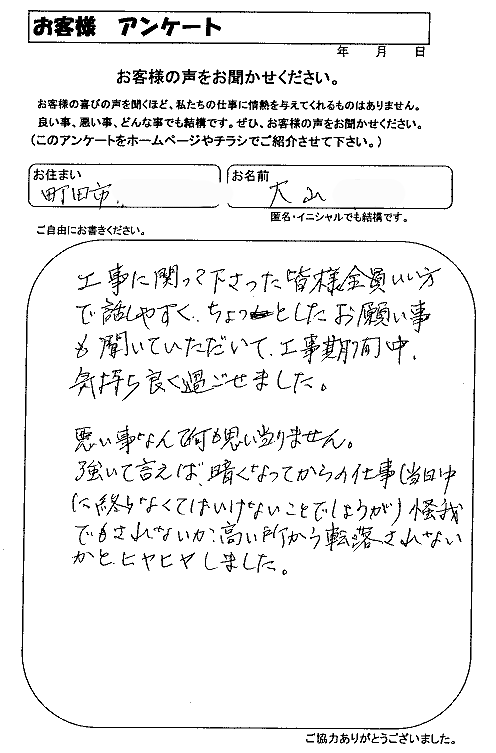 お客様 アンケート
年 月 日
お客様の声をお聞かせください。
お客様の喜びの声を聞くほど、私たちの仕事に情熱を与えてくれるものはありません。
良い事、悪い事、どんな事でも結構です。ぜひ、お客様の声をお聞かせください。
（このアンケートをホームページやチラシでご紹介させて下さい。）
お住まい
町田市
お名前
大山
匿名・イニシャルでも結構です。
ご自由にお書きください。
工事に関って下さった皆様全員いい方
で話しやすく、ちょっとしたお願い事
も聞いていただいて、工事期間中、
気持ち良く過ごせました。
悪い事なんて何も思い当りません。
強いて言えば、暗くなってからの仕事（当日中
に終らなくてはいけないことでしょうが）怪我
でもされないか、高い所から転落されない
かと、ヒヤヒヤしました。
ご協力ありがとうございました。